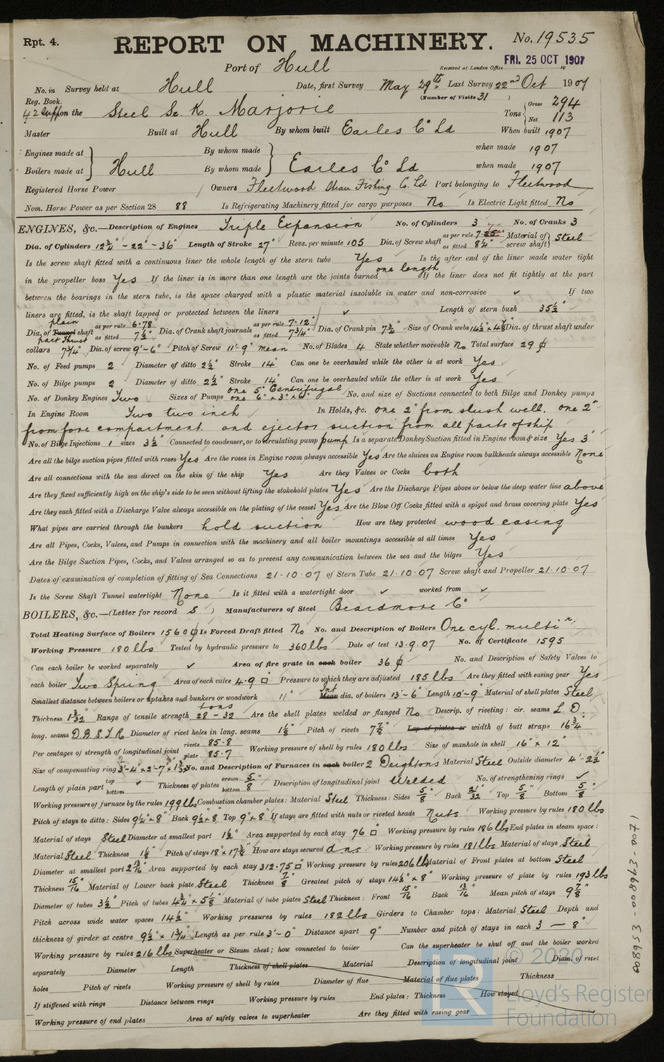 Rpt. 4. REPORT ON MACHINERY. No. 19535
Port of Hull Received at London Office FRI. 25 OCT 1907
No. in Survey held at Hull Date, first Survey May 29th Last Survey 22nd Oct 1907
Reg. Book. (Number of Visits 31)
42 Supp on the Steel Sc. K. Marjorie Tons { Gross 294
Net 113
Master Built at Hull By whom built Earles Co Ld When built 1907
Engines made at Hull By whom made Earles Co Ld when made 1907
Boilers made at By whom made when made 1907
Registered Horse Power Owners Fleetwood Steam Fishing Co. Ld Port belonging to Fleetwood
Nom. Horse Power as per Section 28 88 Is Refrigerating Machinery fitted for cargo purposes No Is Electric Light fitted No
ENGINES, &c.—Description of Engines Triple Expansion No. of Cylinders 3 No. of Cranks 3
Dia. of Cylinders 12½"-22"-36" Length of Stroke 27" Revs. per minute 105 Dia. of Screw shaft as per rule 7.25" as fitted 8¼" Material of screw shaft Steel
Is the screw shaft fitted with a continuous liner the whole length of the stern tube Yes Is the after end of the liner made water tight
in the propeller boss Yes If the liner is in more than one length are the joints burned one length If the liner does not fit tightly at the part
between the bearings in the stern tube, is the space charged with a plastic material insoluble in water and non-corrosive ✓ If two
liners are fitted, is the shaft lapped or protected between the liners ✓ Length of stern bush 35½"
Dia. of Tunnel shaft as per rule 6.78 as fitted 7½" Dia. of Crank shaft journals as per rule 7.12" as fitted 7¾" Dia. of Crank pin 7¾" Size of Crank webs 14½"x4¾" Dia. of thrust shaft under
collars 7¾" Dia. of screw 9'-6" Pitch of Screw 11'-9" mean No. of Blades 4 State whether moveable No Total surface 29 ф
No. of Feed pumps 2 Diameter of ditto 2½" Stroke 14" Can one be overhauled while the other is at work Yes
No. of Bilge pumps 2 Diameter of ditto 2½" Stroke 14" Can one be overhauled while the other is at work Yes
No. of Donkey Engines Two Sizes of Pumps one 5" Centrifugal one 6"x3"x6" No. and size of Suctions connected to both Bilge and Donkey pumps
In Engine Room Two two inch In Holds, &c. one 2" from slush well. one 2"
from fore compartment and ejector suction from all parts of ship
No. of Bilge Injections 1 sizes 3½" Connected to condenser, or to circulating pump pump Is a separate Donkey Suction fitted in Engine room & size Yes 3"
Are all the bilge suction pipes fitted with roses Yes Are the roses in Engine room always accessible Yes Are the sluices on Engine room bulkheads always accessible None
Are all connections with the sea direct on the skin of the ship Yes Are they Valves or Cocks both
Are they fixed sufficiently high on the ship's side to be seen without lifting the stokehold plates Yes Are the Discharge Pipes above or below the deep water line above
Are they each fitted with a Discharge Valve always accessible on the plating of the vessel Yes Are the Blow Off Cocks fitted with a spigot and brass covering plate Yes
What pipes are carried through the bunkers hold suction How are they protected wood casing
Are all Pipes, Cocks, Valves, and Pumps in connection with the machinery and all boiler mountings accessible at all times Yes
Are the Bilge Suction Pipes, Cocks, and Valves arranged so as to prevent any communication between the sea and the bilges Yes
Dates of examination of completion of fitting of Sea Connections 21.10.07 of Stern Tube 21.10.07 Screw shaft and Propeller 21.10.07
Is the Screw Shaft Tunnel watertight None Is it fitted with a watertight door ✓ worked from ✓
BOILERS, &c.—(Letter for record S) Manufacturers of Steel Beardmore Co
Total Heating Surface of Boilers 1560 ф Is Forced Draft fitted No No. and Description of Boilers One cyl. multi r
Working Pressure 180 lbs Tested by hydraulic pressure to 360 lbs Date of test 13.9.07 No. of Certificate 1595
Can each boiler be worked separately ✓ Area of fire grate in each boiler 36 ф No. and Description of Safety Valves to
each boiler Two Spring Area of each valve 4.9 □ Pressure to which they are adjusted 185 lbs Are they fitted with easing gear Yes
Smallest distance between boilers or uptakes and bunkers or woodwork 11" Mean dia. of boilers 13-6" Length 10'-9" Material of shell plates Steel
Thickness 1 3/32 Range of tensile strength 28-32 tons Are the shell plates welded or flanged No Descrip. of riveting: cir. seams L D.
long. seams D.B.S.T.R. Diameter of rivet holes in long. seams 1⅛" Pitch of rivets 7⅞" Lap of plates or width of butt straps 16¾"
Per centages of strength of longitudinal joint rivets 85.8 plate 85.7 Working pressure of shell by rules 180 lbs Size of manhole in shell 16"x12"
Size of compensating ring No. and Description of Furnaces in each boiler 2 Deightons Material Steel Outside diameter 4'-2½"
Length of plain part top bottom Thickness of plates crown bottom ⅝" Description of longitudinal joint Welded No. of strengthening rings ✓
Working pressure of furnace by the rules 199 lbs Combustion chamber plates: Material Steel Thickness: Sides ⅝" Back 21/32 Top ⅝" Bottom ⅝"
Pitch of stays to ditto: Sides 9½"x8" Back 9½"x8 Top 9"x8" If stays are fitted with nuts or riveted heads Nuts Working pressure by rules 180 lbs
Material of stays Steel Diameter at smallest part 1½" Area supported by each stay 76 □ Working pressure by rules 186 lbs End plates in steam space:
Material Steel Thickness 1⅛" Pitch of stays 18"x17½" How are stays secured d n s Working pressure by rules 181 lbs Material of stays Steel
Diameter at smallest part Area supported by each stay 312.75 □ Working pressure by rules 206 lbs Material of Front plates at bottom Steel
Thickness 15/16 Material of Lower back plate Steel Thickness ⅞" Greatest pitch of stays 14½"x8" Working pressure of plate by rules 193 lbs
Diameter of tubes 3½" Pitch of tubes 4¾x5⅛" Material of tube plates Steel Thickness: Front 15/16 Back 13/16 Mean pitch of stays 9⅞"
Pitch across wide water spaces 14½" Working pressures by rules 182 lbs Girders to Chamber tops: Material Steel Depth and
thickness of girder at centre 9½"x1¾" Length as per rule 3'-0" Distance apart 9" Number and pitch of stays in each 3 — 8"
Working pressure by rules 216 lbs Superheater or Steam chest; how connected to boiler Can the superheater be shut off and the boiler worked
separately Diameter Length Thickness of shell plates Material Description of longitudinal joint Diam. of rivet
holes Pitch of rivets Working pressure of shell by rules Diameter of flue Material of flue plates Thickness
If stiffened with rings Distance between rings Working pressure by rules End plates: Thickness How stayed
Working pressure of end plates Area of safety valves to superheater Are they fitted with easing gear
008953-008963-0071
© 2020
Lloyd's Register
Foundation